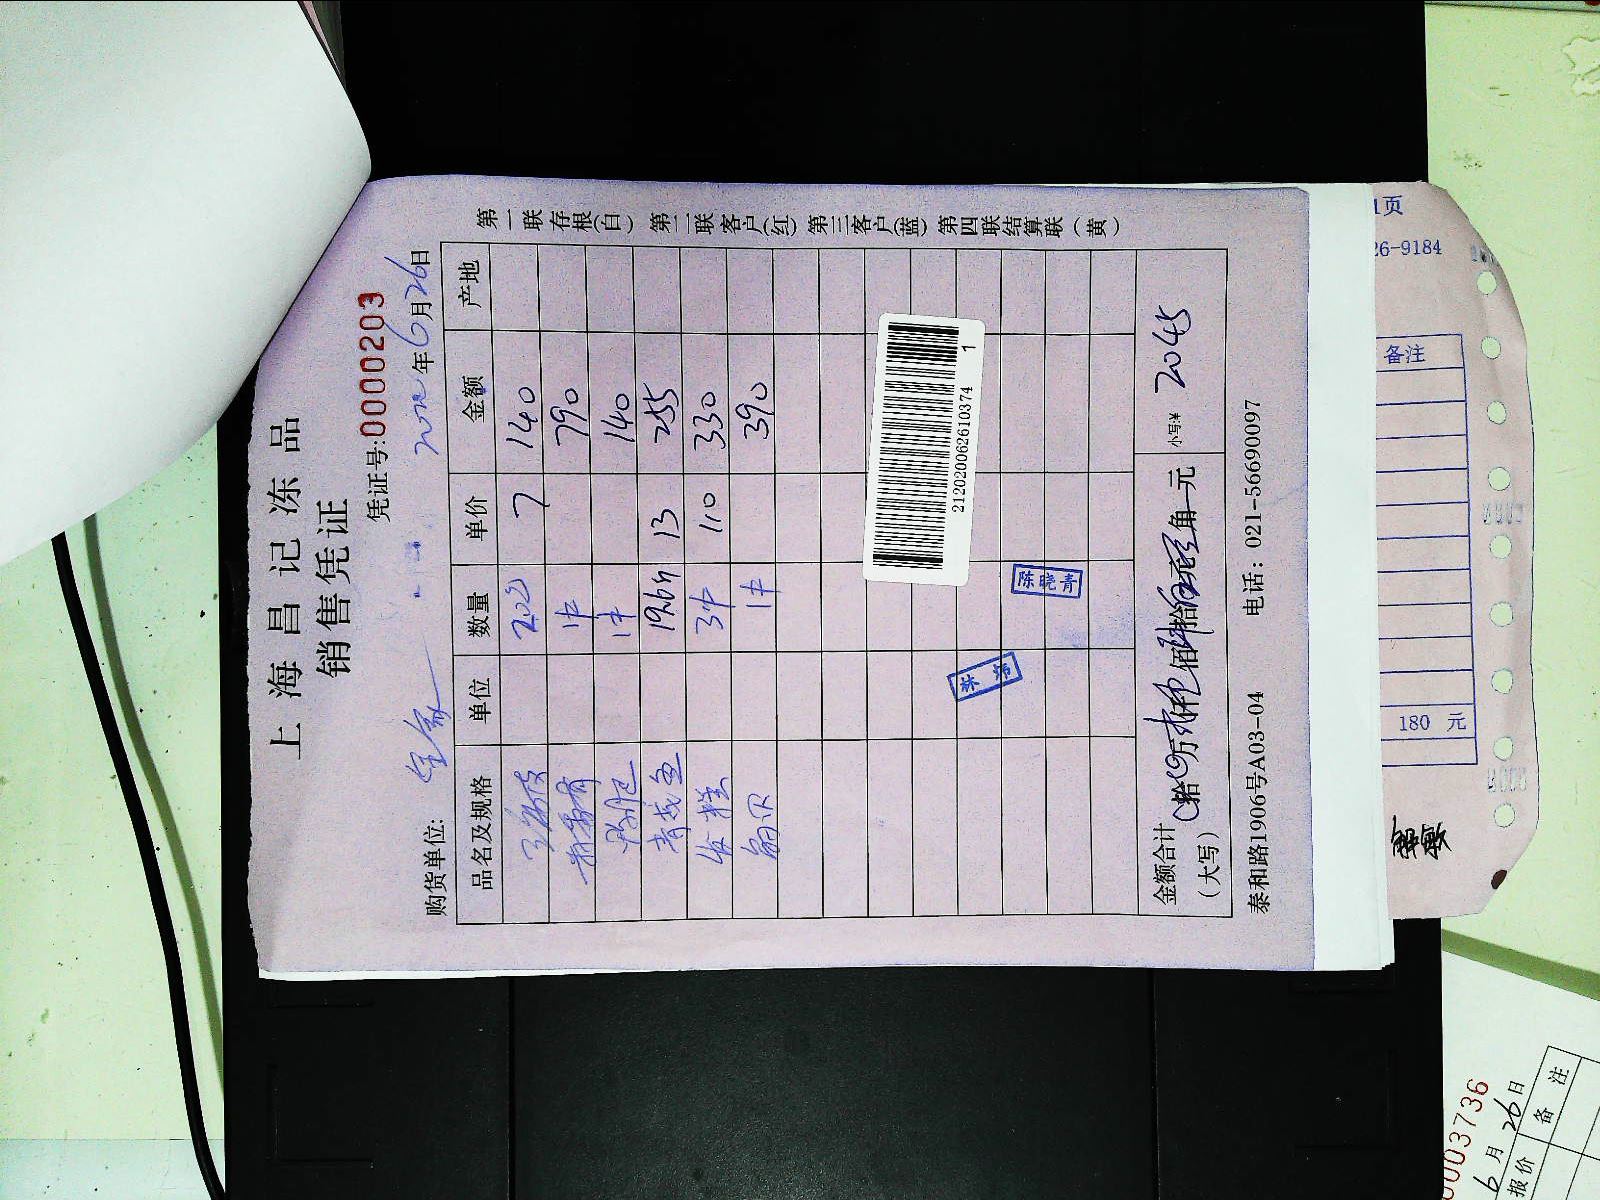 上海昌记冻品
销售凭证
凭证号:0000203
购货单位: 年6月26日
品名及规格 单位 数量 单价 金额 产地
7 140
1件 790
鸡肫 1件 140
青鱼 13 255
年糕 3件 110 330
扇贝 1件 390
金额合计
(大写) 拾 万 仟 佰 拾 元 角 元 小写:¥ 2045
泰和路1906号A03-04 电话: 021-56690097
第一联存根(白) 第二联客户(红) 第三客户(蓝) 第四联结算联(黄)
2120200626610374 1
林
陈晓青
1页
26-9184
备注
180 元
0003736
6月26日
报价 备注